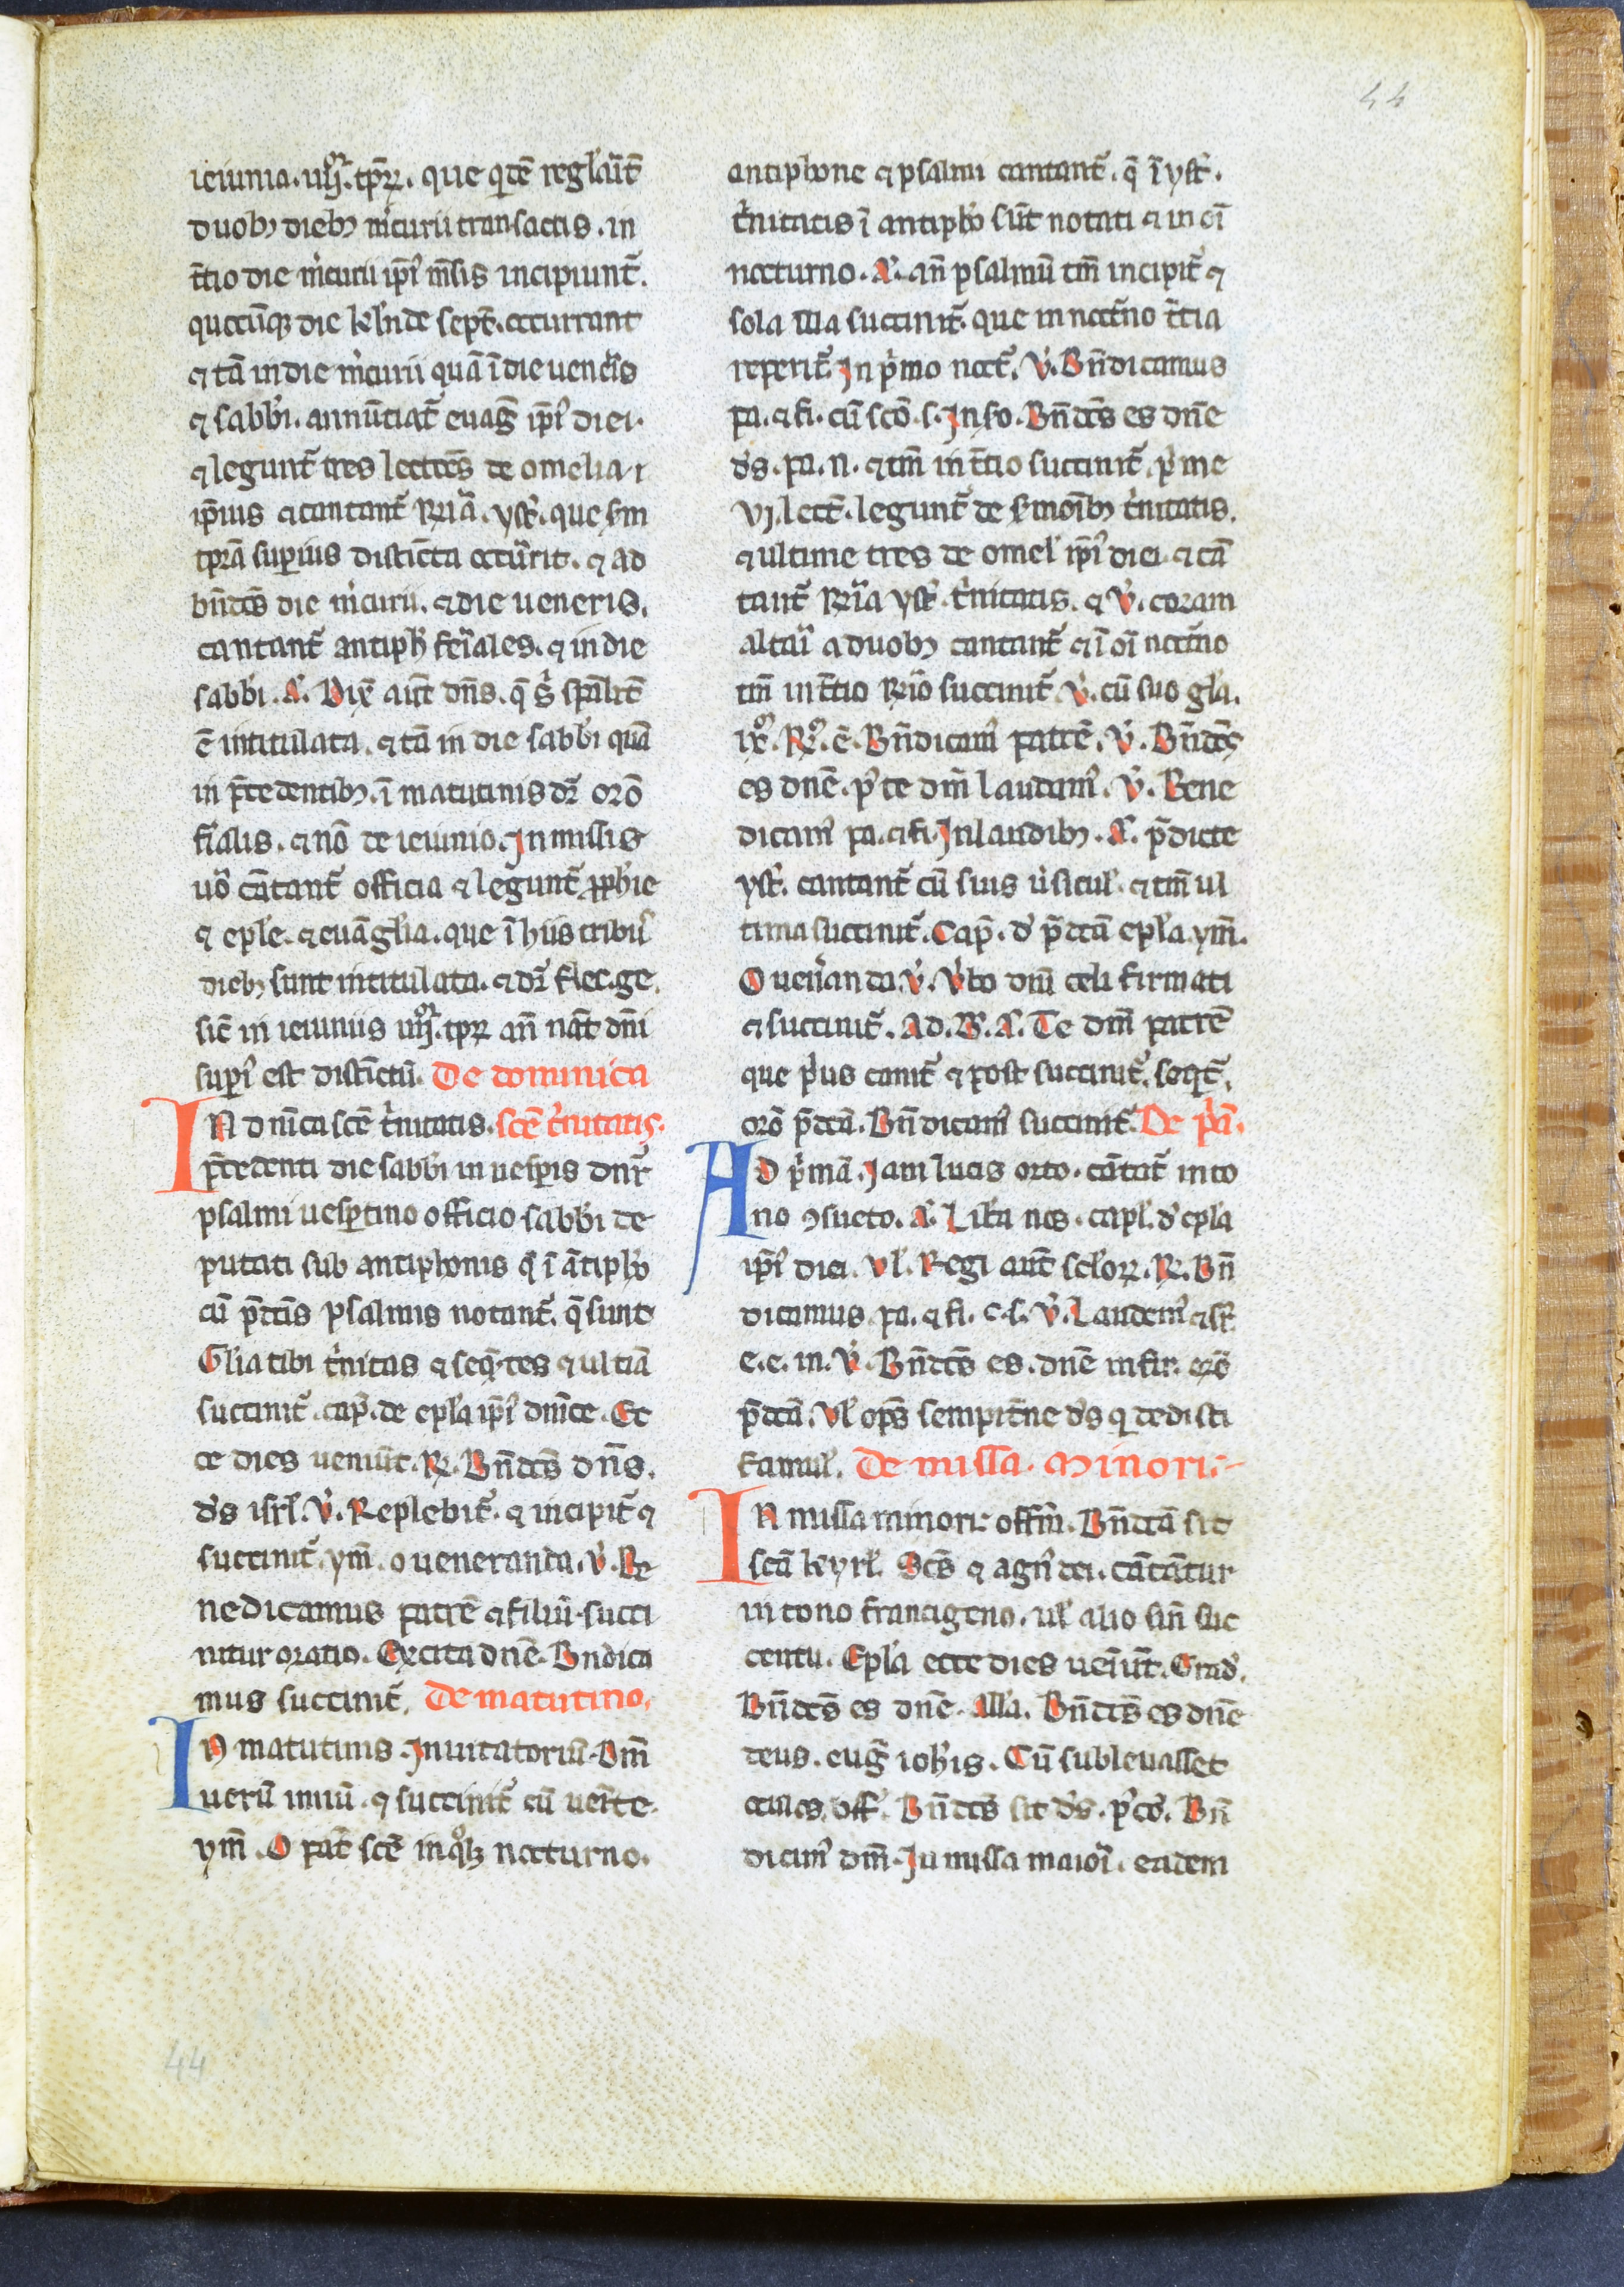 44
ieiunia. iiijor. tp̄rꝝ. que qͥdē reglar̄it̄
duobꝫ diebꝫ mͨurii transactis. in
t̄tio die mͨurii ip̄iꝰ m̄sis incipiunt᷑.
quecūqꝫ die kl̄nde sept̄. occurrant
⁊ tā in die mͨurii quā ī die uen̄is
⁊ sabb̄i. annūtiat᷑ euāḡ ip̄iꝰ diei.
⁊ legunt᷑ tres lect̄ōēs de omelia
ip̄ius ⁊ cantant᷑ R̄ria. yst̄. que s̄m
tp̄ra suꝑius distīcta occur̄it. ⁊ ad
bn̄dc̄s die mͨurii. ⁊ die ueneris.
cantant᷑ antiph̄ fer̄iales. ⁊ in die
sabb̄i. A̓. Dix̄ aūt dn̄s. q̄ s̄ sp̄alit̄
ē intitulata. ⁊ tā in die sabb̄i quā
in p̄cedentibꝫ. ī matutinis dr̄ orō
f̄ialis. ⁊ nō de ieiunio. In missis
uō cātant᷑ officia ⁊ legunt᷑ ꝓph̄ie
⁊ eple. ⁊ euāglia. que ī hiis tribuꝰ
diebꝫ sunt intitulata. ⁊ dr̄ flec. ge.
sic̄ in ieiuniis iiijor. tp̄rꝝ an̄ nat̄ dn̄i
suꝑiꝰ est distīctū. De dominica
IN dn̄ica sc̄e tͥnitatis. sc̄e tͥnitatis.
p̄cedenti die sabb̄i in uesꝑis dn̄r
psalmi uesꝑtino officio sabb̄i de
putati sub antiphonis q̄ ī ātiph̄o
cū p̄dc̄is psalmis notant᷑. q̄ sunt
Gl̄ia tibi tͥnitas ⁊ seq̄tes ⁊ ultiā
succinit᷑. cap̄. de epl̄a ip̄iꝰ dn̄ice. Ec
ce dies ueniūt. R̄. Bn̄dc̄s dn̄s.
ds̄ isrl̄. V̄. Replebit᷑. ⁊ incipit᷑ ⁊
succinit᷑. ym̄. o ueneranda. v̄. Be
nedicamus patrē ⁊ filiū. succi
nitur oratio. Excita dn̄e. Bn̄dica
mus succinit᷑. De matutino.
IN matutinis. Inuitatoriū. Dm̄
uerū unū. ⁊ succinit᷑ cū uen̄ite.
ym̄. O pat̄ sc̄e in qͦlꝫ nocturno.
antiphone ⁊ psalmi cantant᷑. q̄ ī yst̄.
tͥnitatis ī antiph̄o sūt notati ⁊ in oī
nocturno. A̓. an̄ psalmū tm̄ incipit᷑ ⁊
sola illa succinit᷑. que in noct̄no t̄cia
reperit᷑. In pͥmo noct̄. V̄. Bn̄dicamus
pa. ⁊ fi. cū scō. s. In sͦo. Bn̄dc̄s es dn̄e
ds̄. pa. n. ⁊ tm̄ in t̄tio succinit᷑. pͥme
vj. lect̄. legunt᷑ de s̄monībꝫ tͥnitatis.
⁊ ultime tres de omel̄ ip̄iꝰ diei. ⁊ cā
tant᷑ R̄ria yst̄. tͥnitatis. ⁊ V̄. coram
altari a duobꝫ cantant᷑ ⁊ ī oī noct̄no
tm̄ in t̄tio R̄rio succinit᷑. V̄. cū suo gl̄a.
ixm. Rm. ē. Bn̄dicamꝰ patrē. V̄. Bn̄dc̄s
es dn̄e. pꝰ te dm̄ laudamꝰ. V̄. Bene
dicamꝰ pa. ⁊ fi. In laudibꝫ. A̓. p̄dicte
yst̄. cantant᷑ cū suis v̄sicul̄. ⁊ tm̄ ul
tima succinit᷑. Cap̄. d̄ p̄dc̄a epl̄a. ym̄.
O uen̄anda. V̄. V̄bo dn̄i celi firmati
⁊ succinit᷑. Ad. B̄. A̓. Te dm̄ patrē
que pͥus canit᷑ ⁊ post succinit᷑. seqt᷑.
orō p̄dc̄a. Bn̄dicamꝰ succinit᷑. De pͥā.
AD pͥmā. Iam lucis orto. cātat᷑ in to
no ꝯsueto. A̓. Lib̄a nos. capl̄. d̄ epl̄a
ip̄iꝰ diei. Vl̄. Regi aūt sc̄lorꝝ. R̄. Bn̄
dicamus. pa. ⁊ fi. c. s. V̄. Laudemꝰ ⁊ sꝑ.
e. e. in. V̄. Bn̄dc̄s es. dn̄e in fir. orō
p̄dc̄a. Vl̄ op̄s sempit̄ne ds̄ qͥ dedisti
famul̄. De missa. minori.
IN missa minori offm̄. Bn̄dc̄a sit
sc̄a kyrl̄. Sc̄s ⁊ agnꝰ dei. cātātur
in tono francigeno. ul̄ alio sin̄ suc
centu. Epl̄a ecce dies uen̄iūt. Grad̄.
Bn̄dc̄s es dn̄e. Alla. Bn̄dc̄s es dn̄e
deus. euḡ ioh̄is. Cū subleuasset
oculos. off̄. Bn̄dc̄s sit ds̄. pꝰcō. Bn̄
dicimꝰ dm̄. In missa maiori. eadem
44